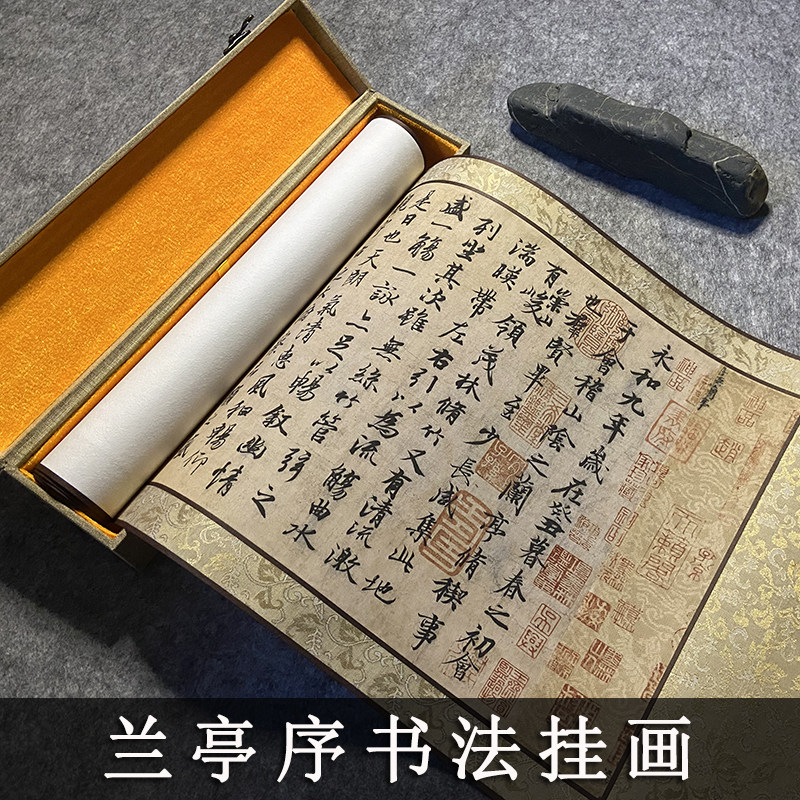 永和九年歲在癸丑暮春之初會
于會稽山陰之蘭亭脩稧事
也羣賢畢至少長咸集此地
有崇山峻領茂林脩竹又有清流激
湍暎帶左右引以為流觴曲水
列坐其次雖無絲竹管弦之
盛一觴一詠亦足以暢敘幽情
是日也天朗氣清惠風和暢仰
兰亭序书法挂画